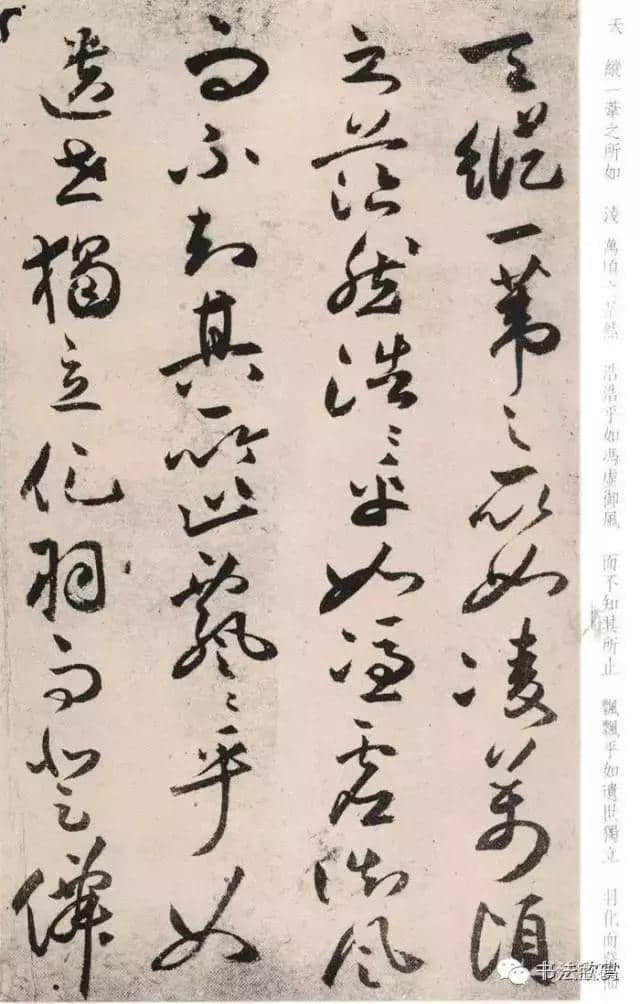 天 縱一葦之所如 凌萬頃之茫然 浩浩乎如馮虛御風 而不知其所止 飄飄乎如遺世獨立 羽化而登僊
天縱一葦之所如凌萬頃
之茫然浩〻乎如馮虛御風
而不知其所止飄〻乎如
遺世獨立化羽而登僊
书法欣赏